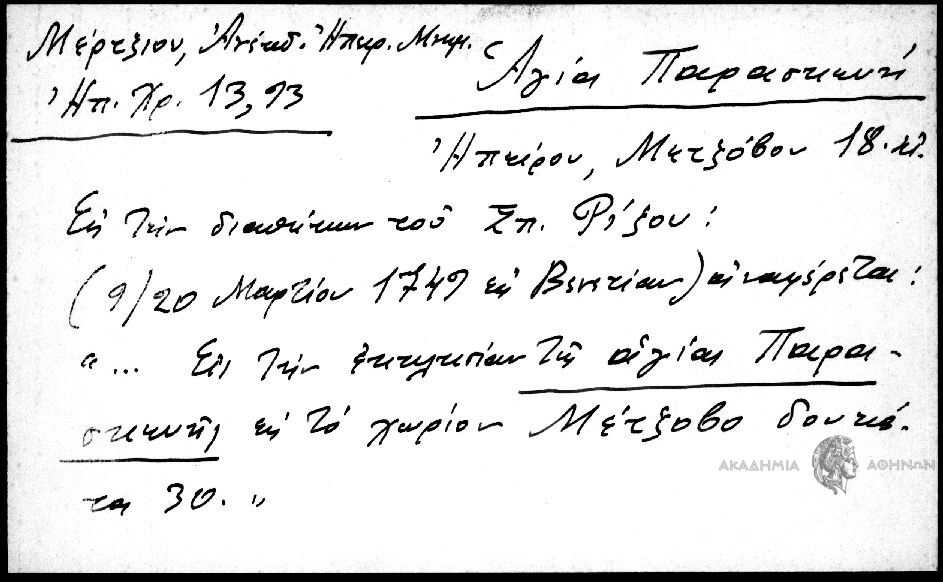 Μέρτζιου, Ἀνέκδ. Ἠπειρ. Μνημ.
Ἠπ. Χρ. 13, 93
Ἁγία Παρασκευή
Ἠπείρου, Μετζόβου 18. αἰ.
Εἰς τὴν διαθήκην τοῦ Σπ. Ρίζου:
(9/20 Μαρτίου 1749 εἰς Βενετίαν) ἀναφέρεται:
"... Εἰς τὴν ἐκκλησίαν τῆς ἁγίας Παρα-
σκευῆς εἰς τὸ χωρίον Μέτζοβο δουκά-
τα 30."
ΑΚΑΔΗΜΙΑ ΑΘΗΝΩΝ